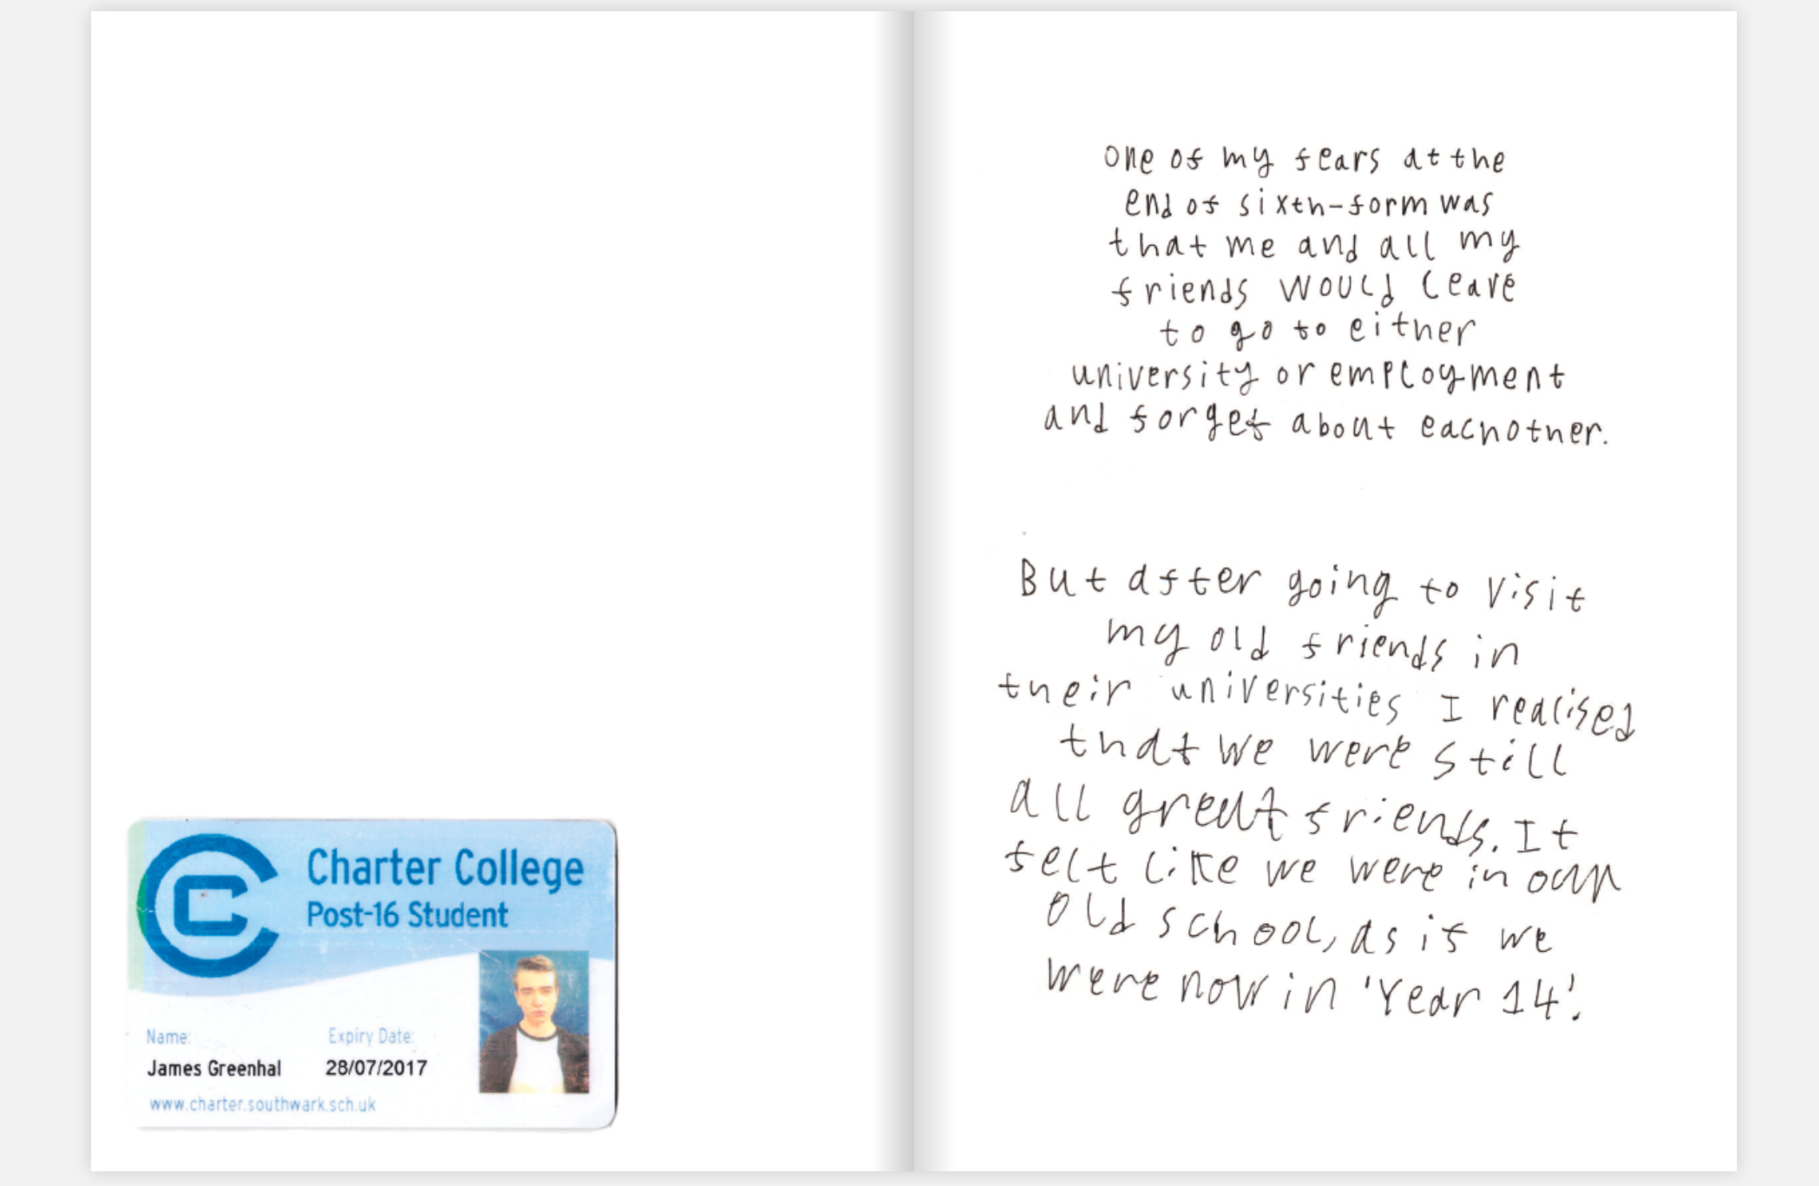 Charter College
Post-16 Student
Name:
Expiry Date:
James Greenhal
28/07/2017
www.charter.southwark.sch.uk
One of my fears at the
end of sixth-form was
that me and all my
friends would leave
to go to either
university or employment
and forget about eachother.
But after going to visit
my old friends in
their universities I realised
that we were still
all great friends. It
felt like we were in our
old school, as if we
were now in 'Year 14'.